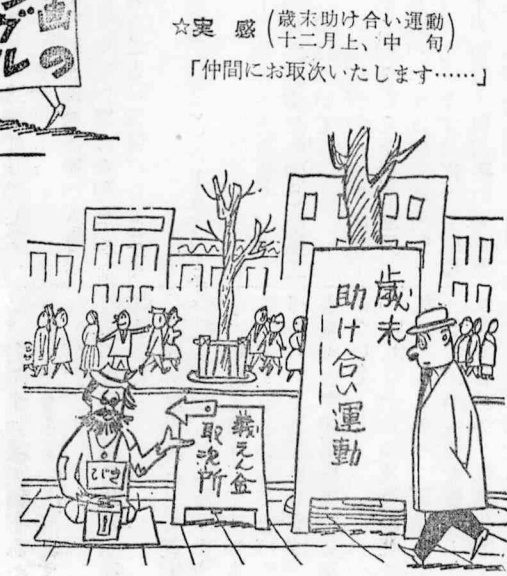 画の
デル
☆実感(歳末助け合い運動
十二月上、中旬)
「仲間にお取次いたします……」
歳末
助け合い運動
義えん金
取次所
こじき